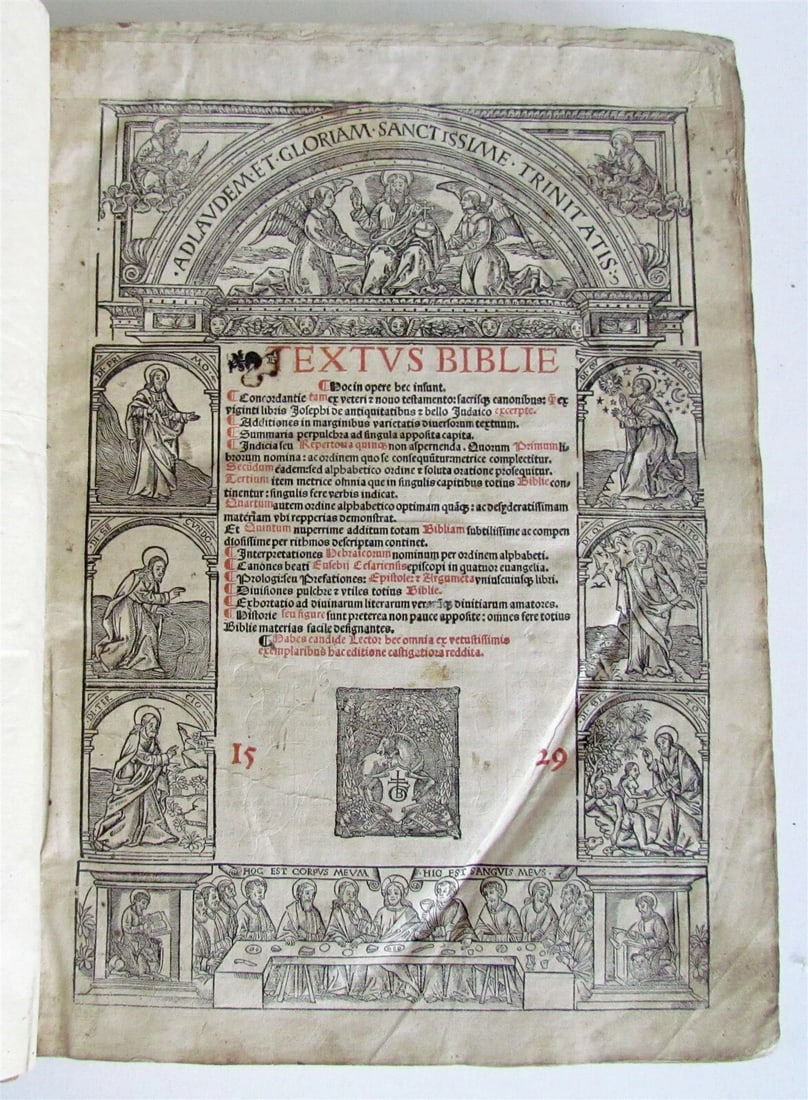 AD LAVDEM·ET·GLORIAM·SANCTISSIME·TRINITATIS:
TEXTVS BIBLIE
¶Hoc in opere hec insunt.
¶Concordantie tam ex veteri ⁊ nouo testamento: sacrisq̃ canonibus: q̃ȝ ex
viginti libris Josephi de antiquitatibus ⁊ bello Judaico excerpte.
¶Additiones in marginibus varietatis diuersorum textuum.
¶Summaria perpulchra ad singula apposita capita.
¶Indicia seu Repertoria quinq̃ non aspernenda. Quorum Primum li-
brorum nomina: ac ordinem quo se consequũtur: metrice complectitur.
Secũdum eadem: sed alphabetico ordine ⁊ soluta oratione prosequitur.
Tertium item metrice omnia que in singulis capitibus totius Biblie con-
tinentur: singulis fere verbis indicat.
Quartum autem ordine alphabetico optimam quãq̃: ac desyderatissimam
materiam vbi repperias demonstrat.
Et Quintum nuperrime additum totam Bibliam subtilissime ac compen
diosissime per rithmos descriptam continet.
¶Interpretationes Hebraicorum nominum per ordinem alphabeti.
¶Canones beati Eusebij Cesariensis episcopi in quatuor euangelia.
¶Prologi: seu Prefationes: Epistole: ⁊ Argumẽta vniuscuiusq̃ libri.
¶Diuisiones pulchre ⁊ vtiles totius Biblie.
¶Exhortatio ad diuinarum literarum diuitiarum amatores.
¶Historie seu figure sunt preterea non pauce apposite: omnes fere totius
Biblie materias facile designantes.
¶Habes candide Lector hec omnia ex vetustissimis
exemplaribus hac editione castigatiora reddita.
DE PRI MO
DE SE CVNDO
DE TER CIO
DE QV ARTO
DE QV
DE SE XTO
15 29
HOC EST CORPVS MEVM · HIC EST SANGVIS MEVS ·